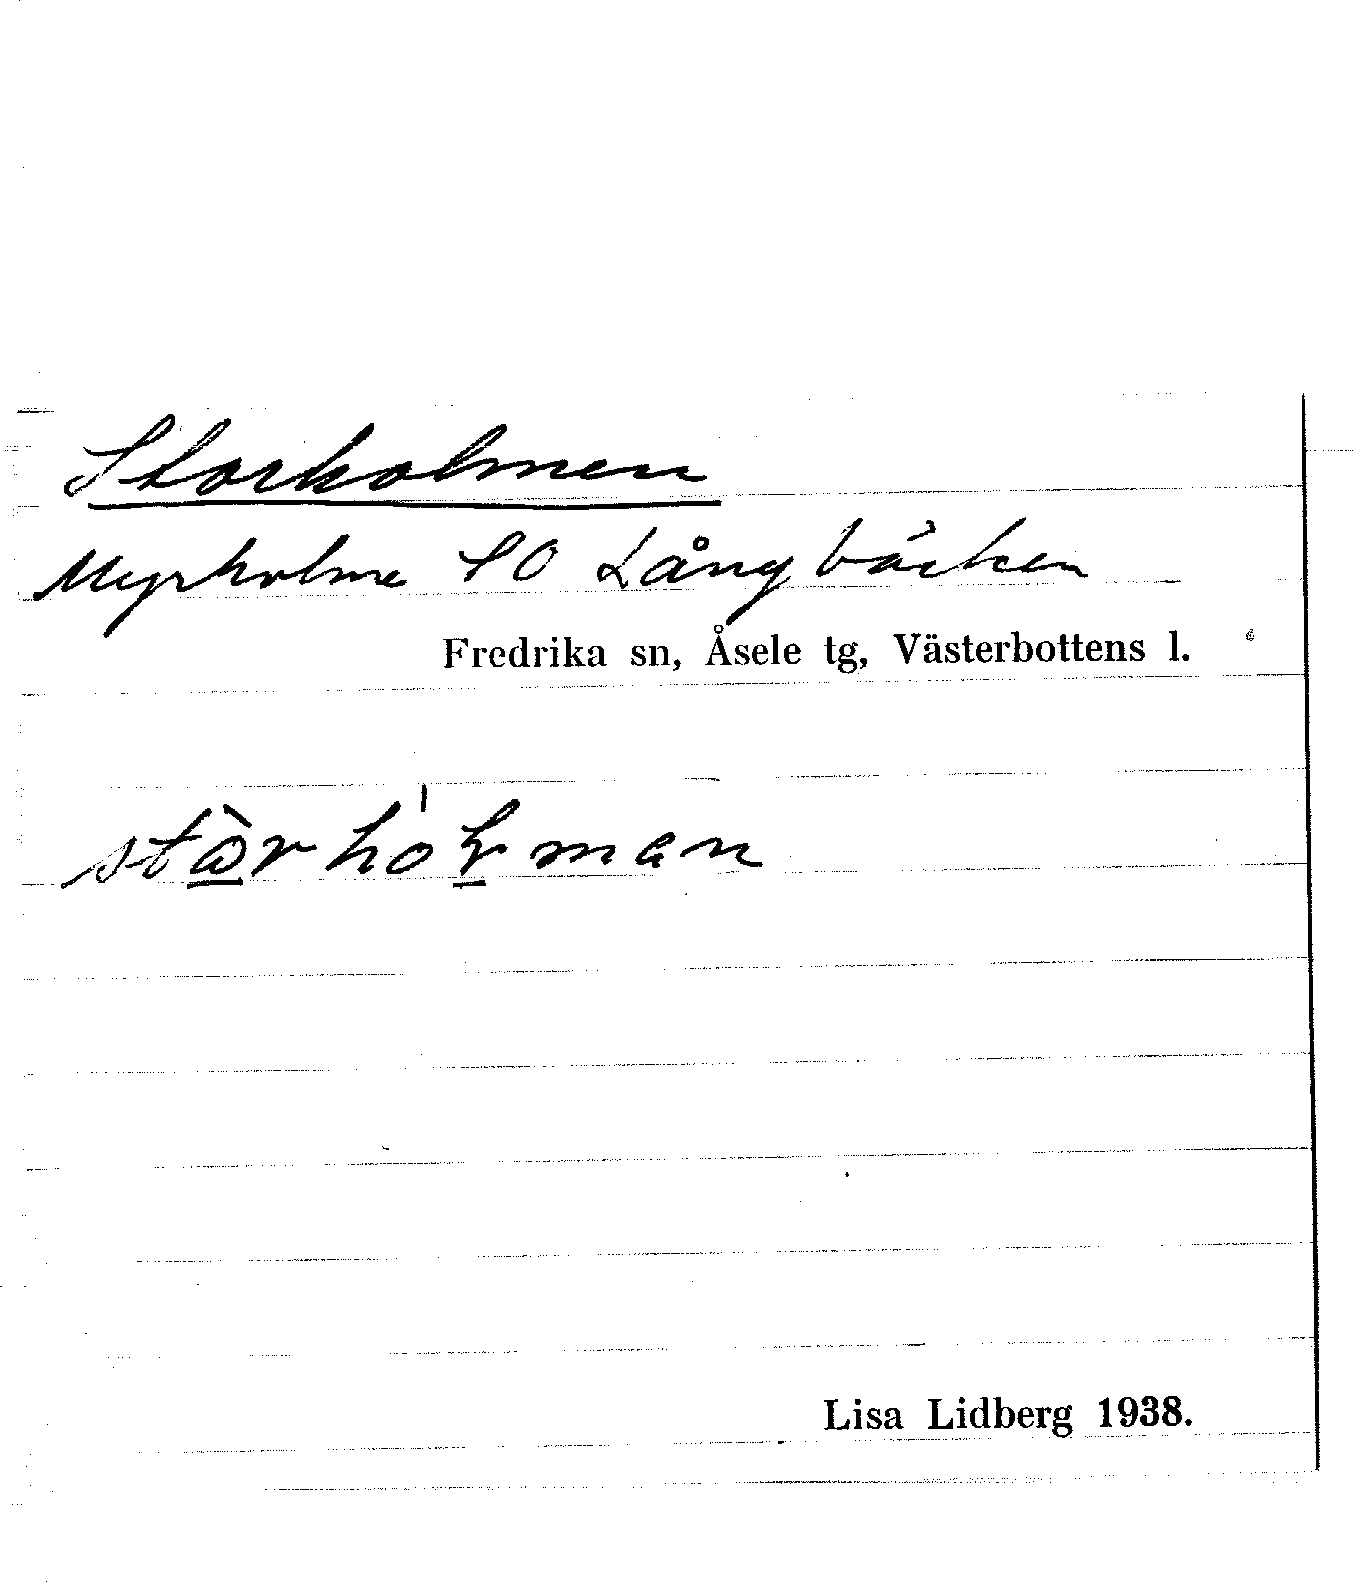 Storholmen
Myrholme SO Långbäcken
Fredrika sn, Åsele tg, Västerbottens l.
Lisa Lidberg 1938.